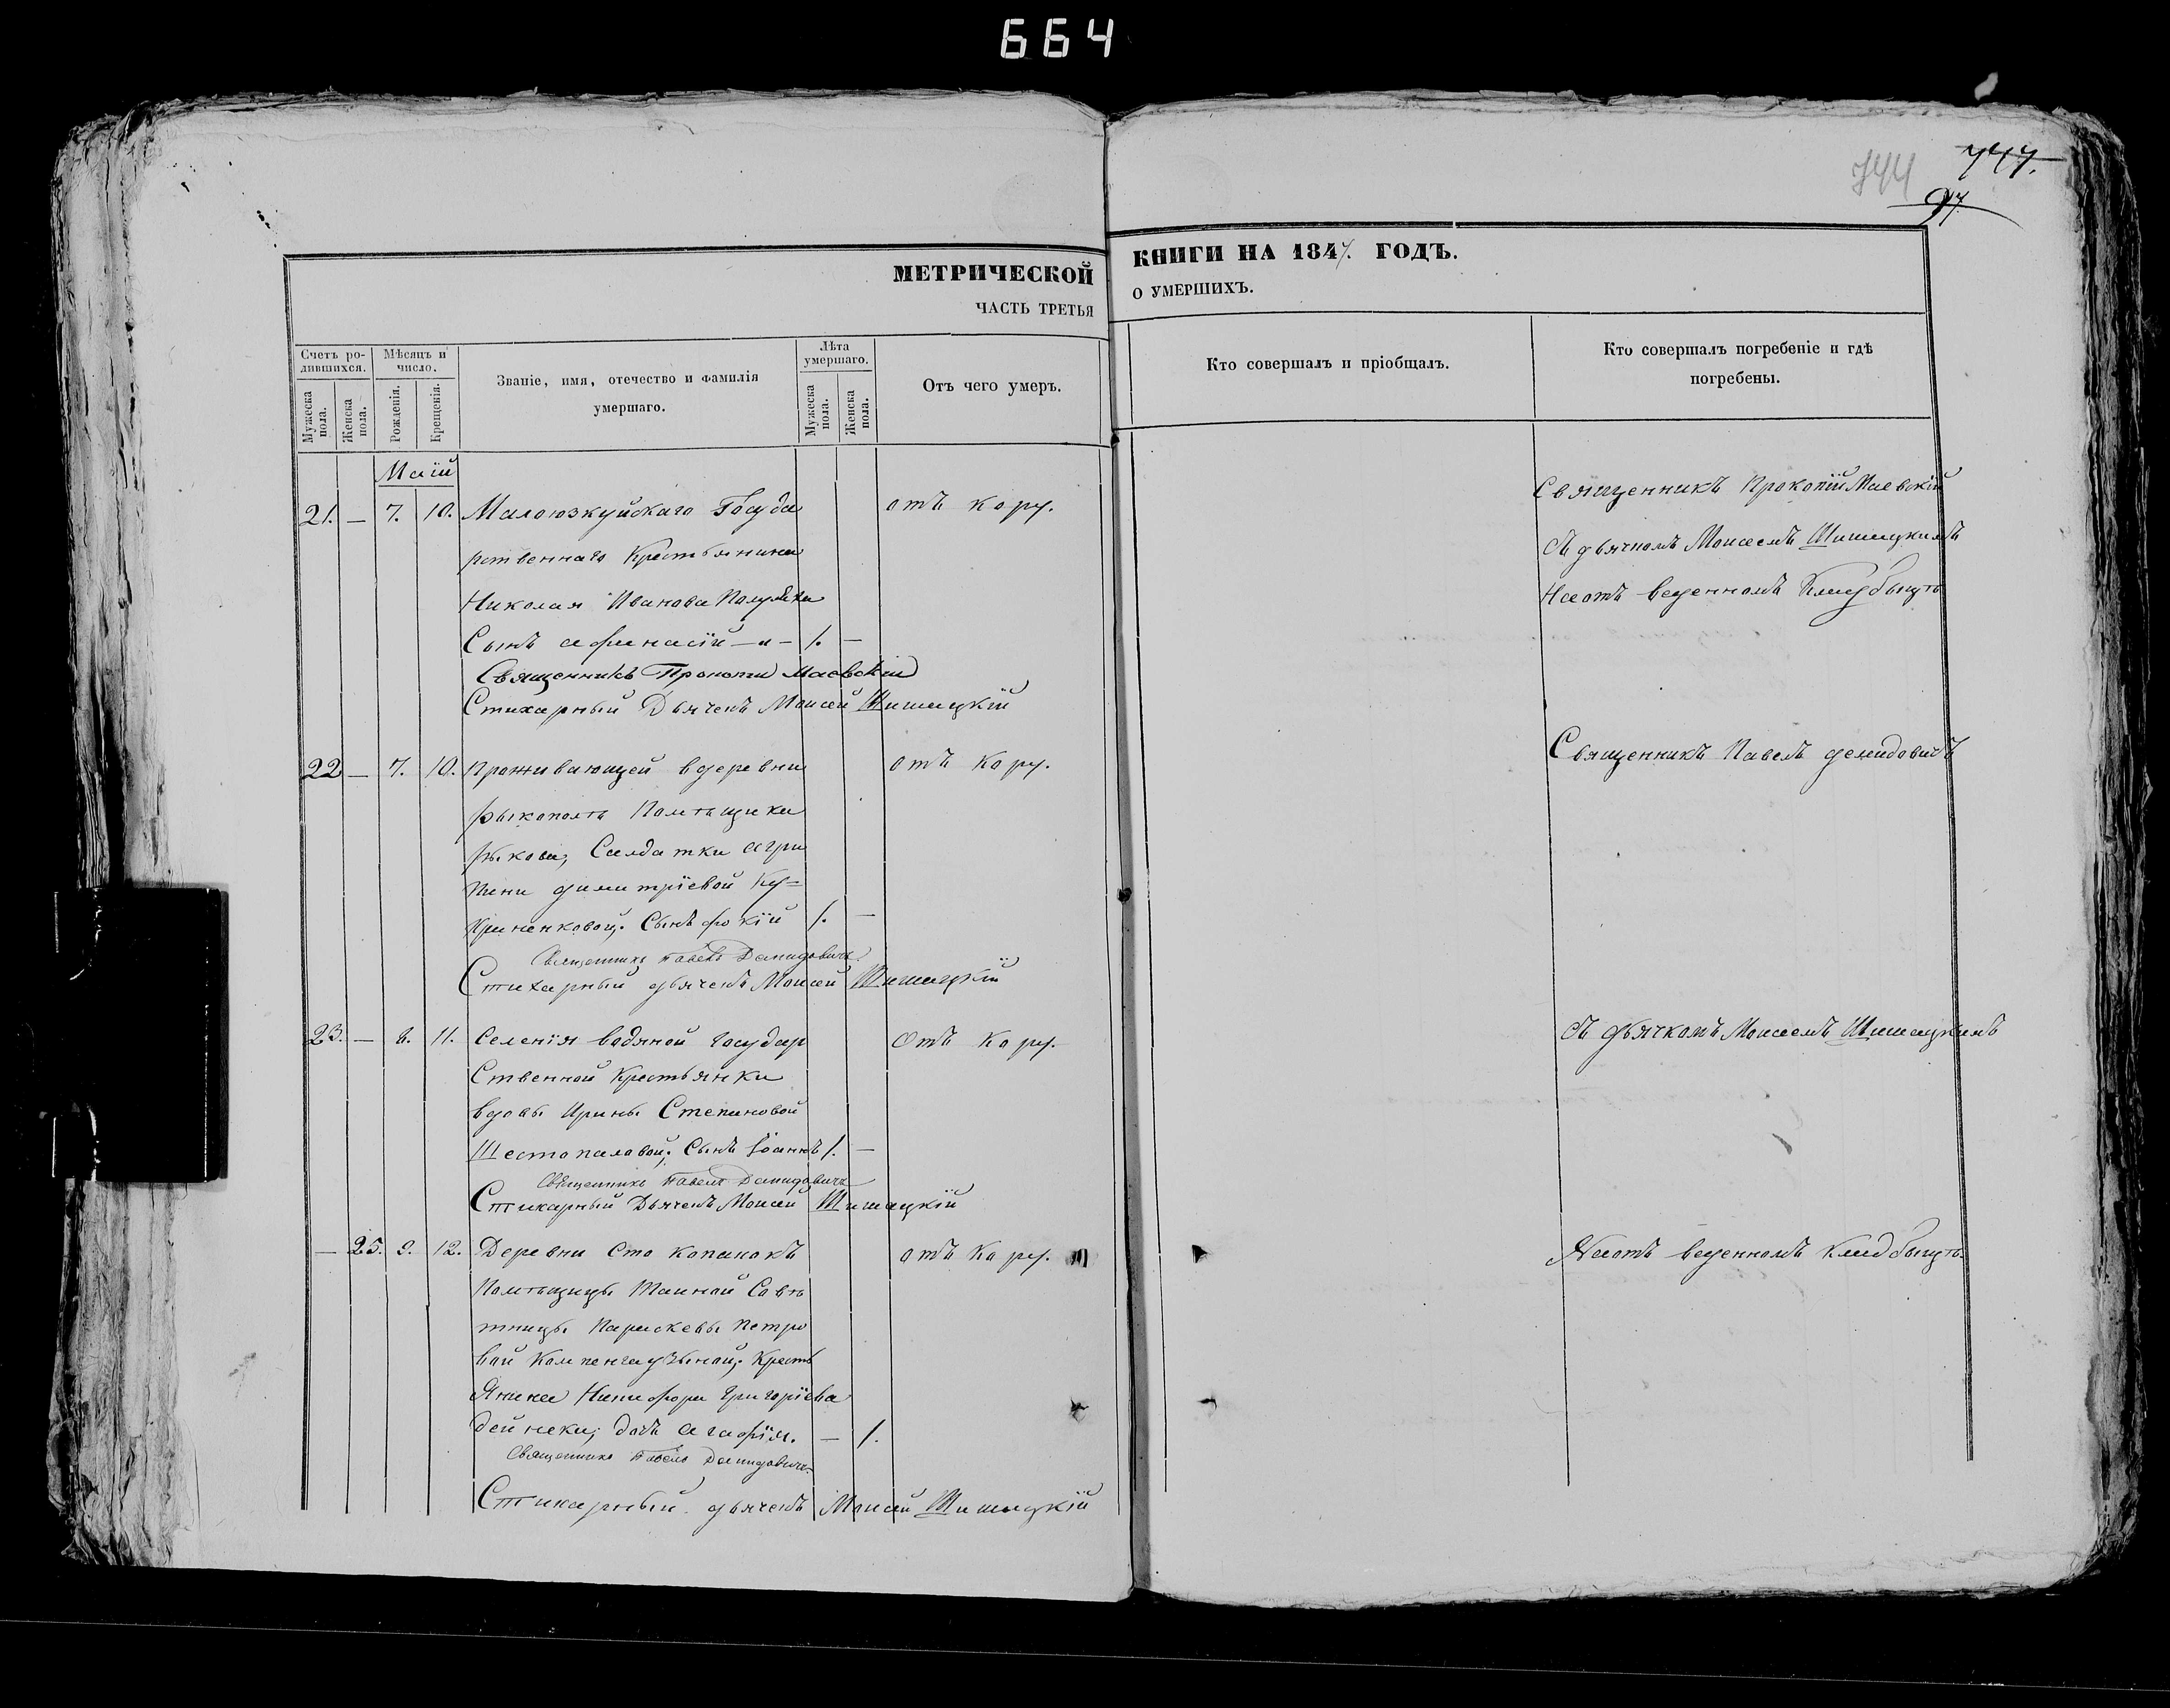 664
744
747.
97
МЕТРИЧЕСКОЙ КНИГИ НА 1847. ГОДЪ.
ЧАСТЬ ТРЕТЬЯ О УМЕРШИХЪ.
Счетъ ро-
дившихся.
Мужеска
пола.
Женска
пола.
Мѣсяцъ и
число.
Рожденія.
Крещенія.
Званіе, имя, отечество и фамилія
умершаго.
Лѣта
умершаго.
Мужеска
пола.
Женска
пола.
Отъ чего умеръ.
Кто совершалъ и пріобщалъ.
Кто совершалъ погребеніе и гдѣ
погребены.
Маій
21. — 7. 10. Малоюзкуйскаго Госуда отъ кору.
рственнаго Крестьянина
Николая Иванова
Сынъ афанасій — 1. —
Священникъ Прокопій Маевскій
Стихарный Дьячекъ Моисей Шишацкій
Священникъ Прокопій Маевскій
Съ дьячкомъ Моисеемъ Шишацкимъ
На отъ веденномъ
22 — 7. 10. Проживающей вдеревни отъ кору.
рыкополь Помѣщика
рыкова, Салдатки агри
пини димитріевой Ку=
приненковой; Сынъ фокій 1. —
Священникъ Павелъ Демидовичъ
Стихарный дьячекъ Моисей Шишацкій
Священникъ Павелъ демидовичъ
23. — 8. 11. Селенія водяной государ Отъ кору.
Ственной Крестьянки
вдовы Ирины Степановой
Шестопаловой; Сынъ Іоаннъ 1. —
Священникъ Павелъ Демидовичъ
Стихарный Дьячекъ Моисей Шишацкій
Съ дьячкомъ Моисеемъ Шишацкимъ
— 25. 9. 12. Деревни Сто копанокъ отъ Кору.
Помѣщицы Тайной Совѣ
тницы Параскевы Петро
вой Компенгаузыной; Кресть
Янина Никифора Григоріева
дейнеки; дочь агафія. — 1.
Священникъ Павелъ Демидовичъ
Стихарный дьячекъ Моисей Шишацкій
На отъ веденномъ